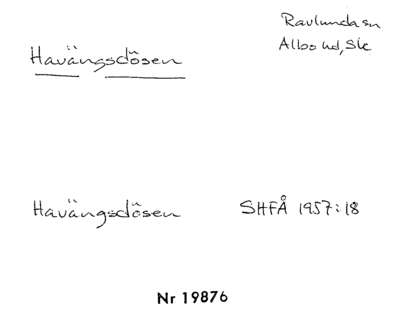 Ravlunda sn
Albo hd, Sk
Havängsdösen
Havängsdösen SHFÅ 1957:18
Nr 19876